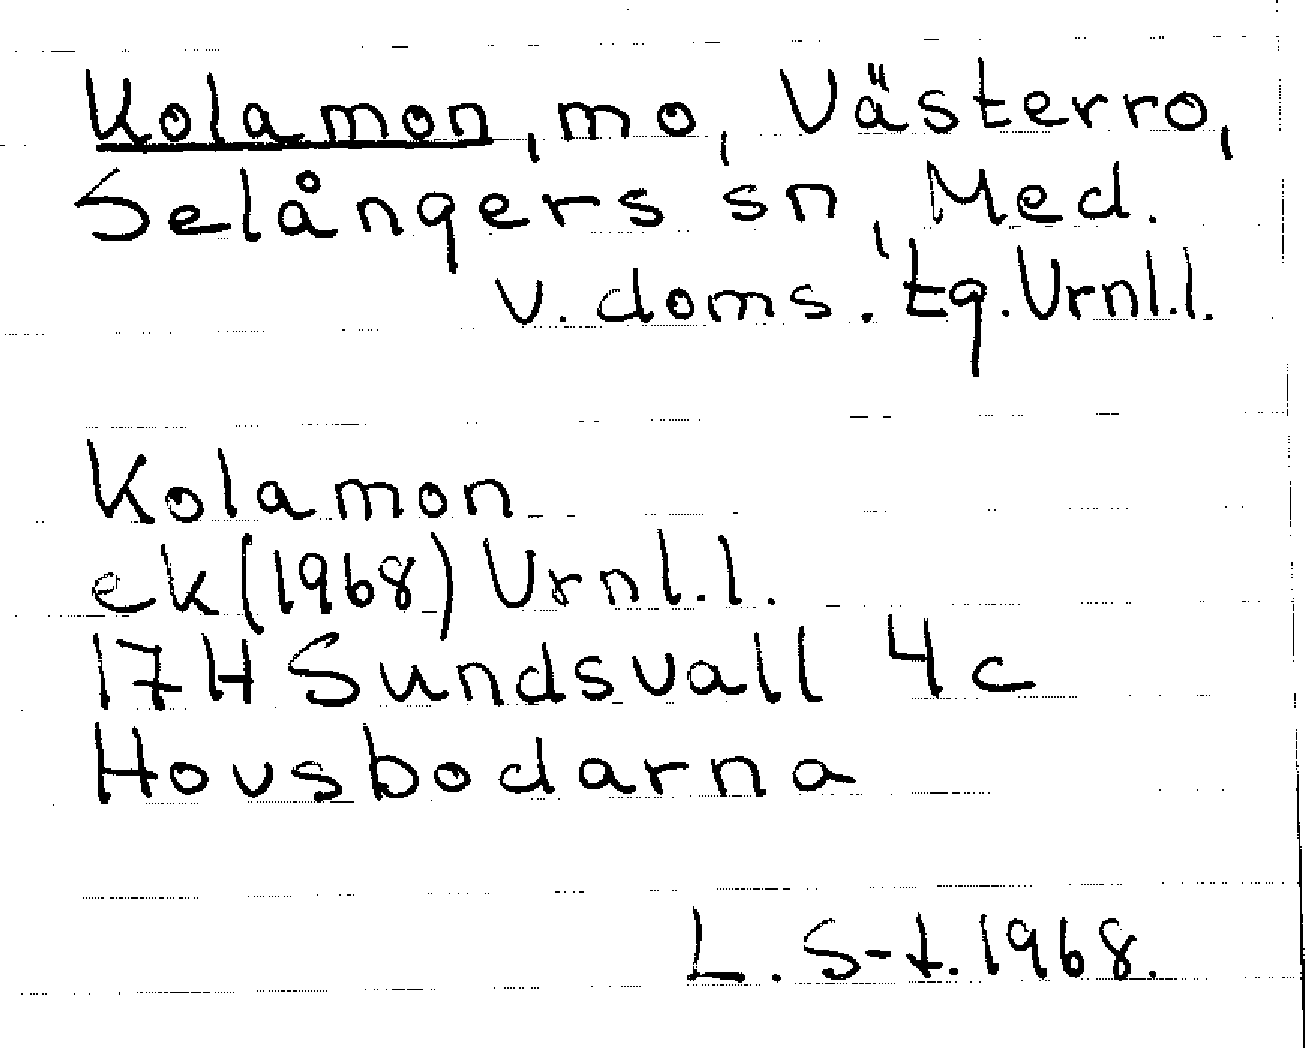 Kolamon, mo, Västerro,
Selångers sn, Med.
v. doms. tg. Vrnl.l.
Kolamon
ek (1968) Vrnl.l.
17H Sundsvall 4c
Hovsbodarna
L. S-t. 1968.